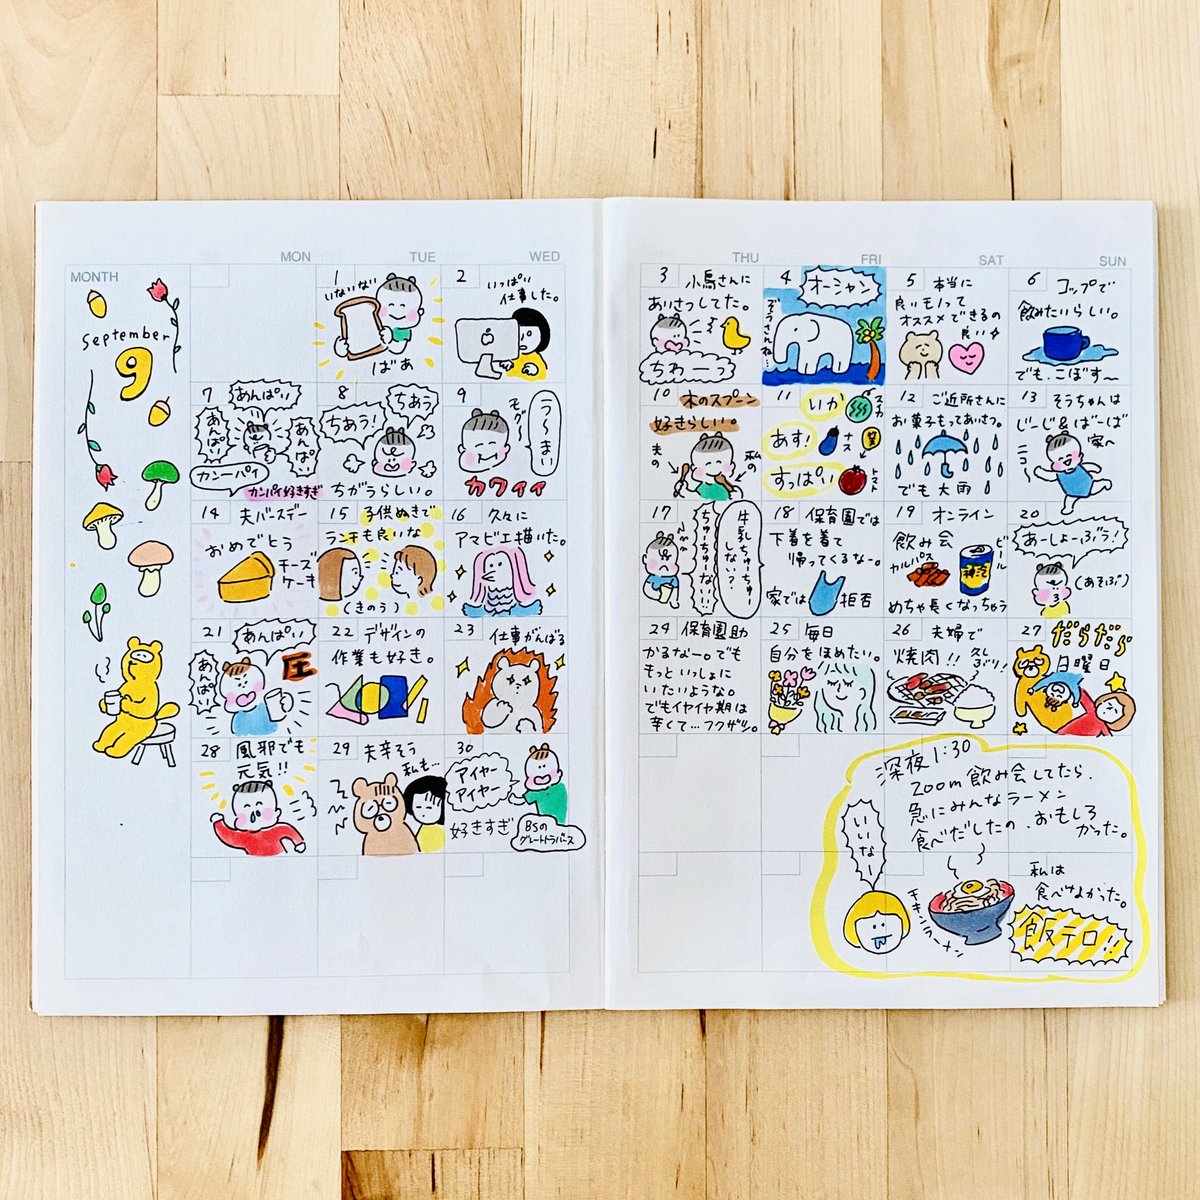 MONTH
MON
TUE
WED
THU
FRI
SAT
SUN
September
9
1
いないない
ばあ
2
いっぱい
仕事した。
3
小鳥さんに
あいさつしてた。
ちわーっ
4
オーシャン
ぞうさんね…
5
本当に
良いモノって
オススメできるの
良い
6
コップで
飲みたいらしい。
でも、こぼす〜
7
あんぱい
あんぱい
あんぱい
カンーパイ
カンパイ好きすぎ
8
ちあう
ちあう!
ちがうらしい。
9
モグ
う〜〜まい
カワイイ
10
木のスプーン
好きらしい。
夫の
私の
11
いか
スイカ
あす!
ナス
すっぱい
トマト
12
ご近所さんに
お菓子もってあいさつ。
でも大雨
13
そうちゃんは
じーじ&ばーば
家へ
14
夫バースデー
おめでとう
チーズ
ケーキ
15
子供ぬきで
ランチも良いな
(きのう)
16
久々に
アマビエ描いた。
17
牛乳ちゅーちゅー
しない?
ちゅーちゅーない!!
18
保育園では
下着を着て
帰ってくるなー。
家では
拒否
19
オンライン
飲み会
カルパス
ビール
めちゃ長くなっちゃう
20
あーしょーぶう!
(あそぶ)
21
あんぱい
あんぱい
圧
22
デザインの
作業も好き。
23
仕事がんばる
24
保育園助
かるなー。でも
もっといっしょに
いたいような。
でもイヤイヤ期は
辛くて…フクザツ。
25
毎日
自分をほめたい。
26
夫婦で
焼肉!!
久しぶり!
27
だらだら
日曜日
28
風邪でも
元気!!
29
夫辛そう
私も…
30
アイヤー
アイヤー
好きすぎ
BSの
グレートトラバース
深夜1:30
zoom飲み会してたら、
急にみんなラーメン
食べだしたの、おもしろ
かった。
いいなー
チキンラーメン
私は
食べなかった。
飯テロ!!